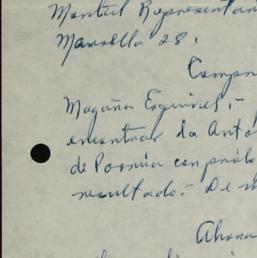 Montiel Representan
Marsella 28.
Compr
Magaña Esquivel.-
encontrar la Anto
de Porrúa con prólo
resultado.- De m
Ahora